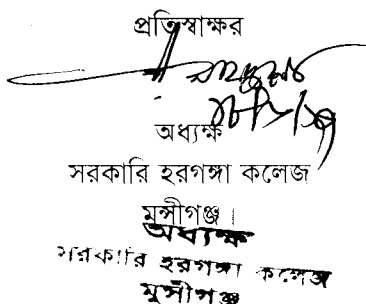 প্রতিস্বাক্ষর
অধ্যক্ষ
সরকারি হরগঙ্গা কলেজ
মুন্সীগঞ্জ।
অধ্যক্ষ
সরকারি হরগঙ্গা কলেজ
মুন্সীগঞ্জ